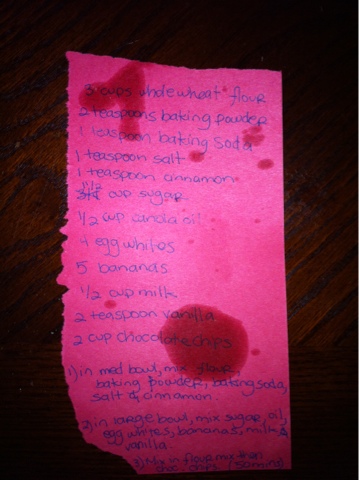 3 cups whole wheat flour
2 teaspoons baking powder
1 teaspoon baking soda
1 teaspoon salt
1 teaspoon cinnamon
1 1/2 cup sugar
1/2 cup canola oil
4 egg whites
5 bananas
1/2 cup milk
2 teaspoon vanilla
2 cup chocolate chips
1) in med bowl, mix flour,
baking powder, baking soda,
salt & cinnamon.
2) in large bowl, mix sugar, oil,
egg whites, bananas, milk &
vanilla.
3) Mix in flour mix then
choc. chips